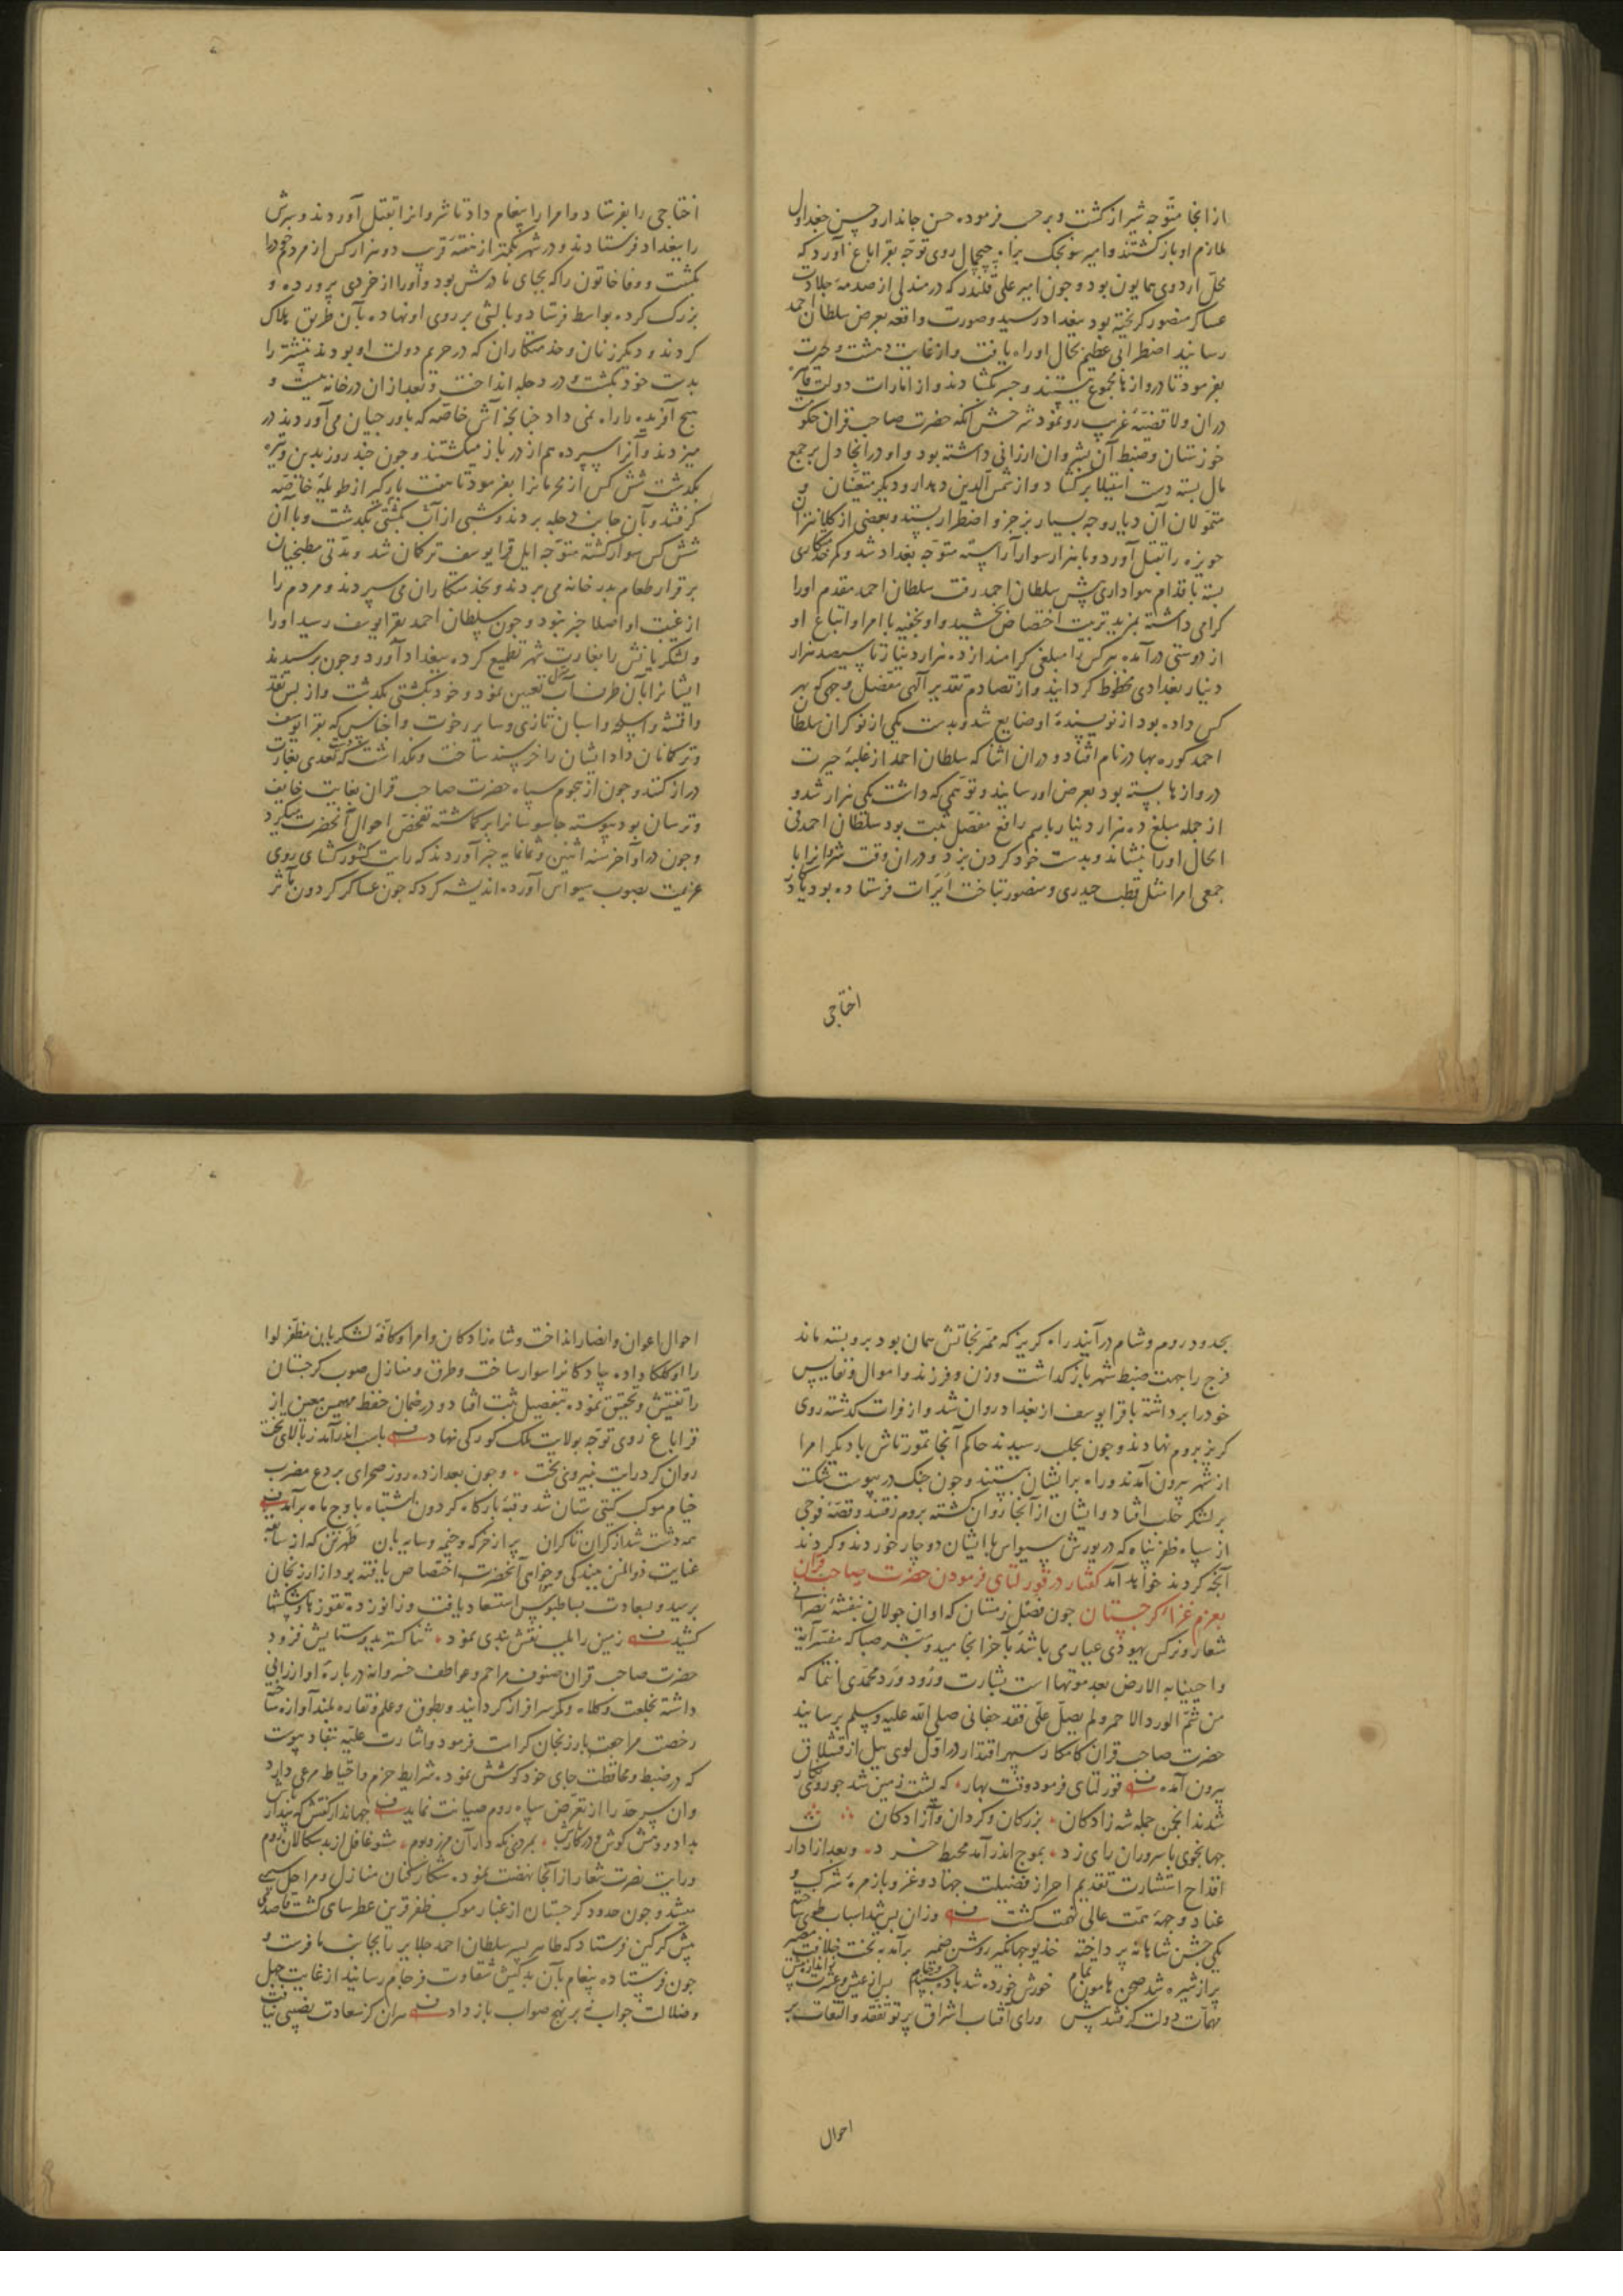 از انجا متوجه شیراز کشت و برحسب فرموده حسن جاندار و حسن جغداول
ملازم او بازکشتند و امیر سونجک براه چمچمال روی توجه بقراباغ آورد که
محل اردوی همایون بود و جون امیر علی قلندر که در مندلی از صدمهٔ جلادت
عساکر منصور کریخته بود ببغداد رسید و صورت واقعه بعرض سلطان احمد
رسانید اضطرابی عظیم بحال او راه یافت و از غایت دهشت و حیرت
بفرمود تا دروازها مجموع ببستند و جسر بکشادند و از امارات دولت قاهره
دران ولا قضیهٔ غریب رو نمود شرحش انکه حضرت صاحب قران حکومت
خوزستان و ضبط آن بشروان ارزانی داشته بود و او در انجا دل بر جمع
مال بسته دست استیلا برکشاد و از شمس الدین دهدار و دیکر متعینان و
متمولان آن دیار وجه بسیار بزجر و اضطرار بستد و بعضی از کلانتران
حویزه را بقتل آورد و با هزار سوار آراسته متوجه بغداد شد و کمر خدمتکاری
بسته باقدام هواداری پیش سلطان احمد رفت سلطان احمد مقدم او را
کرامی داشته بمزید تربیت اختصاص بخشید و او بخفیه با امرا و اتباع او
از دوستی درآمده هرکس را مبلغی کرامند از ده هزار دینار تا سیصد هزار
دینار بغدادی محظوظ کردانید و از تصادم تقدیر آلهی مفصل وجهی که بهر
کس داده بود از نویسندهٔ او ضایع شد و بدست یکی از نوکران سلطان
احمد کوره بهادر نام افتاد و دران اثنا که سلطان احمد از غلبهٔ حیرت
دروازها بسته بود بعرض او رسانید و توهمی که داشت یکی هزار شد و
از جمله مبلغ ده هزار دینار باسم رافع مفصل ثبت بود سلطان احمد فی
الحال او را بنشاند و بدست خود کردن بزد و دران وقت شروانرا با
جمعی امرا مثل قطب حیدری و منصور بتاخت ایرات فرستاده بود یادکار
اختاجی
اختاجی را بفرستاد و امرا را پیغام داد تا شروانرا بقتل آوردند و سرش
را ببغداد فرستادند و در شهر بکمتر از هفته قریب دو هزار کس از مردم خودرا
بکشت و وفا خاتون را که بجای مادرش بود و اورا از خردی پرورده و
بزرک کرده بواسط فرستاد و بالشی بر روی او نهاده بآن طریق هلاک
کردند و دیکر زنان و خدمتکاران که در حریم دولت او بودند بیشتر را
بدست خود بکشت و در دجله انداخت و بعد ازان در خانه ببست و
هیچ آفریده را راه نمی داد جنانجه آش خاصه که باورجیان می آوردند در
میزدند و آنرا سپرده هم از در باز میکشتند و جون جند روز بدین وتیره
بکذشت شش کس از محرمانرا بفرمود تا هفت بارکیر از طویلهٔ خاصه
کرفتند و بآن جانب دجله بردند و شبی از آب بکشتی بکذشت و با آن
شش کس سوار کشته متوجه ایل قرا یوسف ترکمان شد و بدتی مطبخیان
برقرار طعام بدر خانه می بردند و بخدمتکاران می سپردند و مردم را
از غیبت او اصلا خبر نبود و جون سلطان احمد بقرا یوسف رسید اورا
و لشکریانش را بغارت شهر تطمیع کرده ببغداد آورد و جون برسیدند
ایشانرا بآن طرف آب تعیین نمود و خود بکشتی بکذشت و از بس نقد
و اقمشه و اسلحه و اسبان تازی و سایر رخوت و اجناس که بقرا یوسف
و ترکمانان داد ایشان را خرسند ساخت و نکذاشت که دست تعدی بغارت
دراز کنند و جون از هجوم سپاه حضرت صاحب قران بغایت خایف
و ترسان بود پیوسته جاسوسانرا برکماشته تفحص احوال آنحضرت میکرد
و جون در اواخر سنه اثنین و ثمانمایه خبر آوردند که رایت کشورکشای روی
عزیمت بصوب سیواس آورده اندیشه کرد که جون عساکر کردون مآثر
بحدود روم و شام درآیند راه کریز که ممر نجاتش همان بود برو بسته ماند
فرج را جهت ضبط شهر باز کذاشت و زن و فرزند و اموال و نفایس
خود را برداشته با قرا یوسف از بغداد روان شد و از فرات کذشته روی
کریز بروم نهادند و جون بحلب رسیدند حاکم آنجا تمورتاش با دیکر امرا
از شهر بیرون آمدند و راه بر ایشان ببستند و جون جنک در پیوست شکست
بر لشکر حلب افتاد و ایشان از آنجا روان کشته بروم رفتند و قصهٔ فوجی
از سپاه ظفر پناه که در یورش سیواس با ایشان دوچار خوردند و کردند
آنجه کردند خواهد آمد کفتار در قورلتای فرمودن حضرت صاحب قران
بعزم غزاء کرجستان جون فصل زمستان که اوان جولان بنفشهٔ نصرانی
شعار و نرکس یهودی عیاری می باشد بآخر انجامید و مبشر صبا که مفسر آیة
واحیینا به الارض بعد موتها است بشارت ورود ورد محمدی انتما که
من شم الورد الاحمر و لم یصل علی فقد جفانی صلی الله علیه وسلم برسانید
حضرت صاحب قران کامکار سپهر اقتدار در اول لوی ییل از قشلاق
بیرون آمده ف قورلتای فرمود وقت بهار که پشت زمین شد جو روی نکار
شدند انجمن جمله شه زادکان بزرکان و کردان و آزادکان
جهانجوی با سروران رای زد بموج اندر آمد محیط خرد و بعد از ادار
اقداح استشارت تقدیم احراز فضیلت جهاد و غزو با زمرهٔ شرک و
عناد وجههٔ همت عالی نهمت کشت ف وزان پس شد اسباب طوی ساخته
یکی جشن شاهانه پرداخته خدیو جهانکیر روشن ضمیر برآمد به تخت خلافت مصیر
پر از شیره شد صحن هامون تمام خورش خورده شد باده جستند و جام پس از عیش و عشرت
مهمات دولت کرفتند پیش و رای آفتاب اشراق پرتو تفقد و التفات بر
احوال
احوال اعوان و انصار انداخت و شاه زادکان و امرا و کافهٔ لشکریان مظفر لوا
را اوکلکا داده پیادکانرا سوار ساخت و طرق و منازل صوب کرجستان
را تفتیش و تحقیق نموده بتفصیل ثبت افتاد و در ضمان حفظ مهیمن معین از
قراباغ روی توجه بولایت ملک کورکی نهاد ف باسب اندرآمد ز بالای تخت
روان کرد رایت بنیروی بخت و جون بعد از ده روز صحرای بردع مضرب
خیام موکب کیتی ستان شد و قبهٔ بارکاه کردون اشتباه باوج ماه برآمد ف
همه دشت شد از کران تا کران پر از خرکه و خیمه و سایه بان طهرتن که از سابقه
عنایت ذوالمنن ببندکی و هواداری آنحضرت اختصاص یافته بود از ارزنجان
برسید و بسعادت بساط بوس استسعاد یافت و زانو زده تقوزها و پیشکشها
کشید ف زمین را بلب نقش بندی نمود ثنا کسترید و ستایش فزود
حضرت صاحب قران صنوف مراحم و عواطف خسروانه دربارهٔ او ارزانی
داشته بخلعت و کلاه و کمر سرافراز کردانید و بطوق و علم و نقاره بلند آوازه ساخته
رخصت مراجعت بارزنجان کرامت فرمود و اشارت علیه بنفاد پیوست
که در ضبط و محافظت جای خود کوشش نموده شرایط حزم و احتیاط مرعی دارد
و ان سرحد را از تعرض سپاه روم صیانت نماید ف جهاندار کفتش که بیدار باش
بداد و دهش کوش و در کار باش بمردی نکه دار آن مرز و بوم مشو غافل از بدسکالان روم
و رایت نصرت شعار از آنجا نهضت نموده شکار کنان منازل و مراحل طی
میشد و جون حدود کرجستان از غبار موکب ظفر قرین عطر سای کشت قاصدی
پیش کرکین فرستاد که طاهر پسر سلطان احمد جلایر را بجانب ما فرست و
جون فرستاده پیغام بآن بدکیش شقاوت فرجام رسانید از غایت جهل
و ضلالت جواب نه بر نهج صواب باز داد ف سران کز سعادت نصیبی نیافت